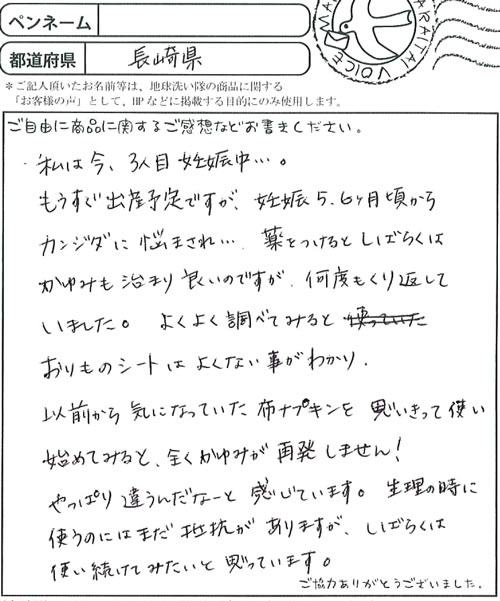 ペンネーム
都道府県 長崎県
＊ご記入頂いたお名前等は、地球洗い隊の商品に関する
「お客様の声」として、HPなどに掲載する目的にのみ使用します。
ご自由に商品に関するご感想などお書きください。
私は今、3人目妊娠中…。
もうすぐ出産予定ですが、妊娠5.6ヶ月頃から
カンジダに悩まされ… 薬をつけるとしばらくは
かゆみも治まり良いのですが、何度もくり返して
いました。 よくよく調べてみると 使っていた
おりものシートはよくない事がわかり、
以前から気になっていた布ナプキンを思いきって使い
始めてみると、全くかゆみが再発しません!
やっぱり違うんだなーと感じています。生理の時に
使うのにはまだ抵抗がありますが、しばらくは
使い続けてみたいと思っています。
ご協力ありがとうございました。
VOICE